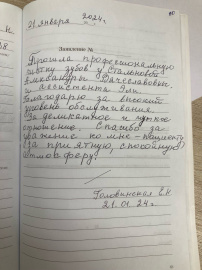 80
21 января 2024г.
Заявление №
Прошла профессиональную
чистку зубов у Стальновой
Александры Вячеславовны,
и ассистента Эли.
Благодарю за высокий
уровень обслуживания.
За деликатное и чуткое
отношение. Спасибо за
уважение ко мне - пациенту
за приятную, спокойную
атмосферу!
Головинская Е.Н
21.01.24г.